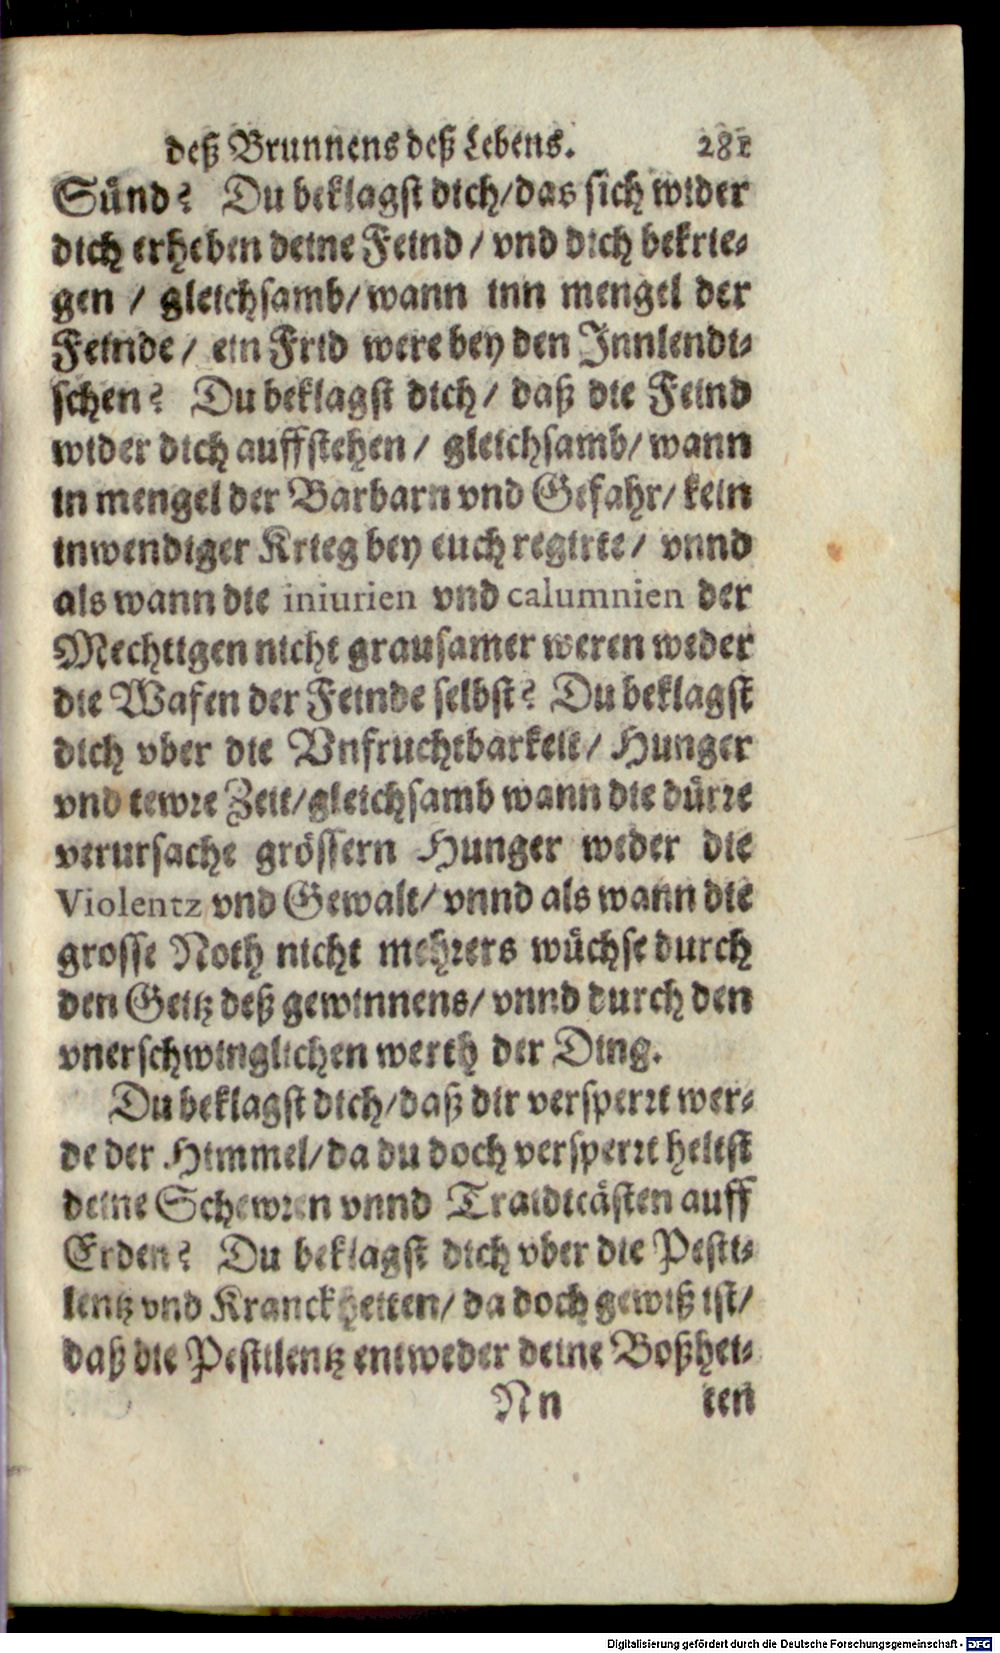 deß Brunnens deß Lebens. 281
Sünd? Du beklagst dich/das sich wider
dich erheben deine Feind / vnd dich bekrie-
gen / gleichsamb/ wann inn mengel der
Feinde / ein Frid were bey den Innlendi-
schen? Du beklagst dich / daß die Feind
wider dich auffstehen / gleichsamb/ wann
in mengel der Barbarn vnd Gefahr/ kein
inwendiger Krieg bey euch regirte / vnnd
als wann die iniurien vnd calumnien der
Mechtigen nicht grausamer weren weder
die Wafen der Feinde selbst? Du beklagst
dich vber die Vnfruchtbarkeit/ Hunger
vnd tewre Zeit/gleichsamb wann die dürre
verursache grössern Hunger weder die
Violentz vnd Gewalt/ vnnd als wann die
grosse Noth nicht mehrers wüchse durch
den Geitz deß gewinnens/ vnnd durch den
vnerschwinglichen werth der Ding.
Du beklagst dich/daß dir versperrt wer-
de der Himmel/da du doch versperrt heltst
deine Schewren vnnd Traidtcästen auff
Erden? Du beklagst dich vber die Pesti-
lentz vnd Kranckheiten/ da doch gewiß ist/
daß die Pestilentz entweder deine Boßhei-
Nn ten
Digitalisierung gefördert durch die Deutsche Forschungsgemeinschaft - DFG